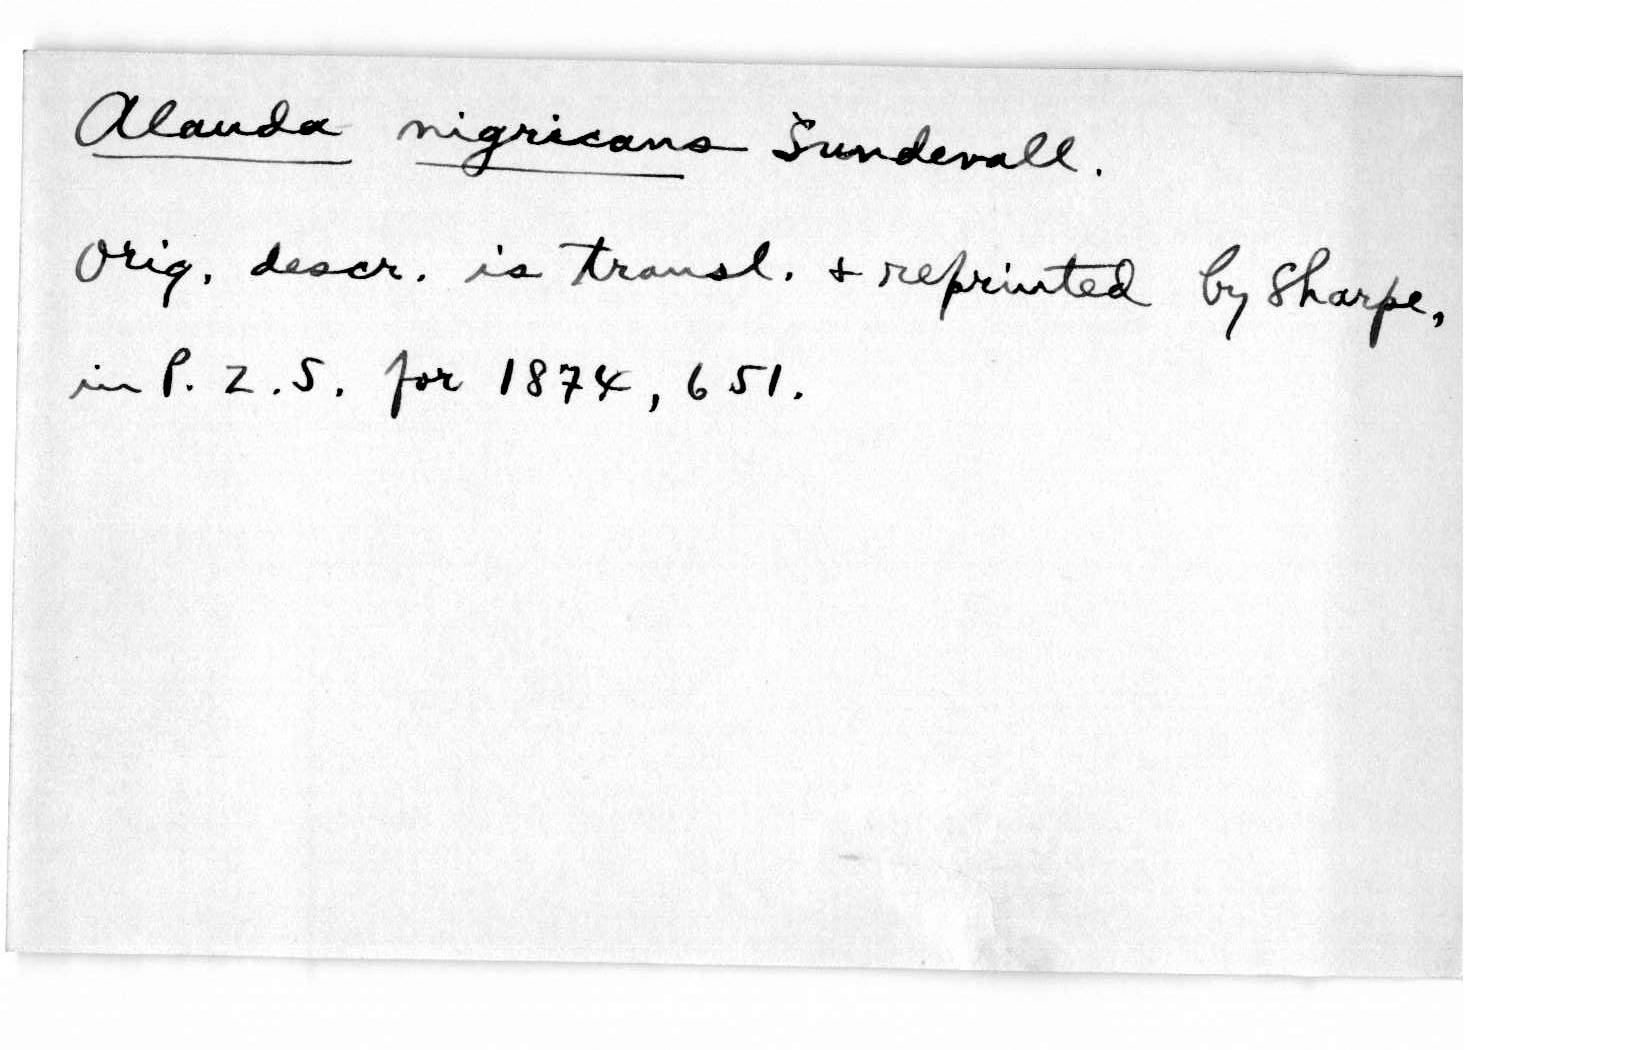 Alauda nigricans Sundevall.
Orig. descr. is transl. & reprinted by Sharpe,
in P. Z. S. for 1874, 651.